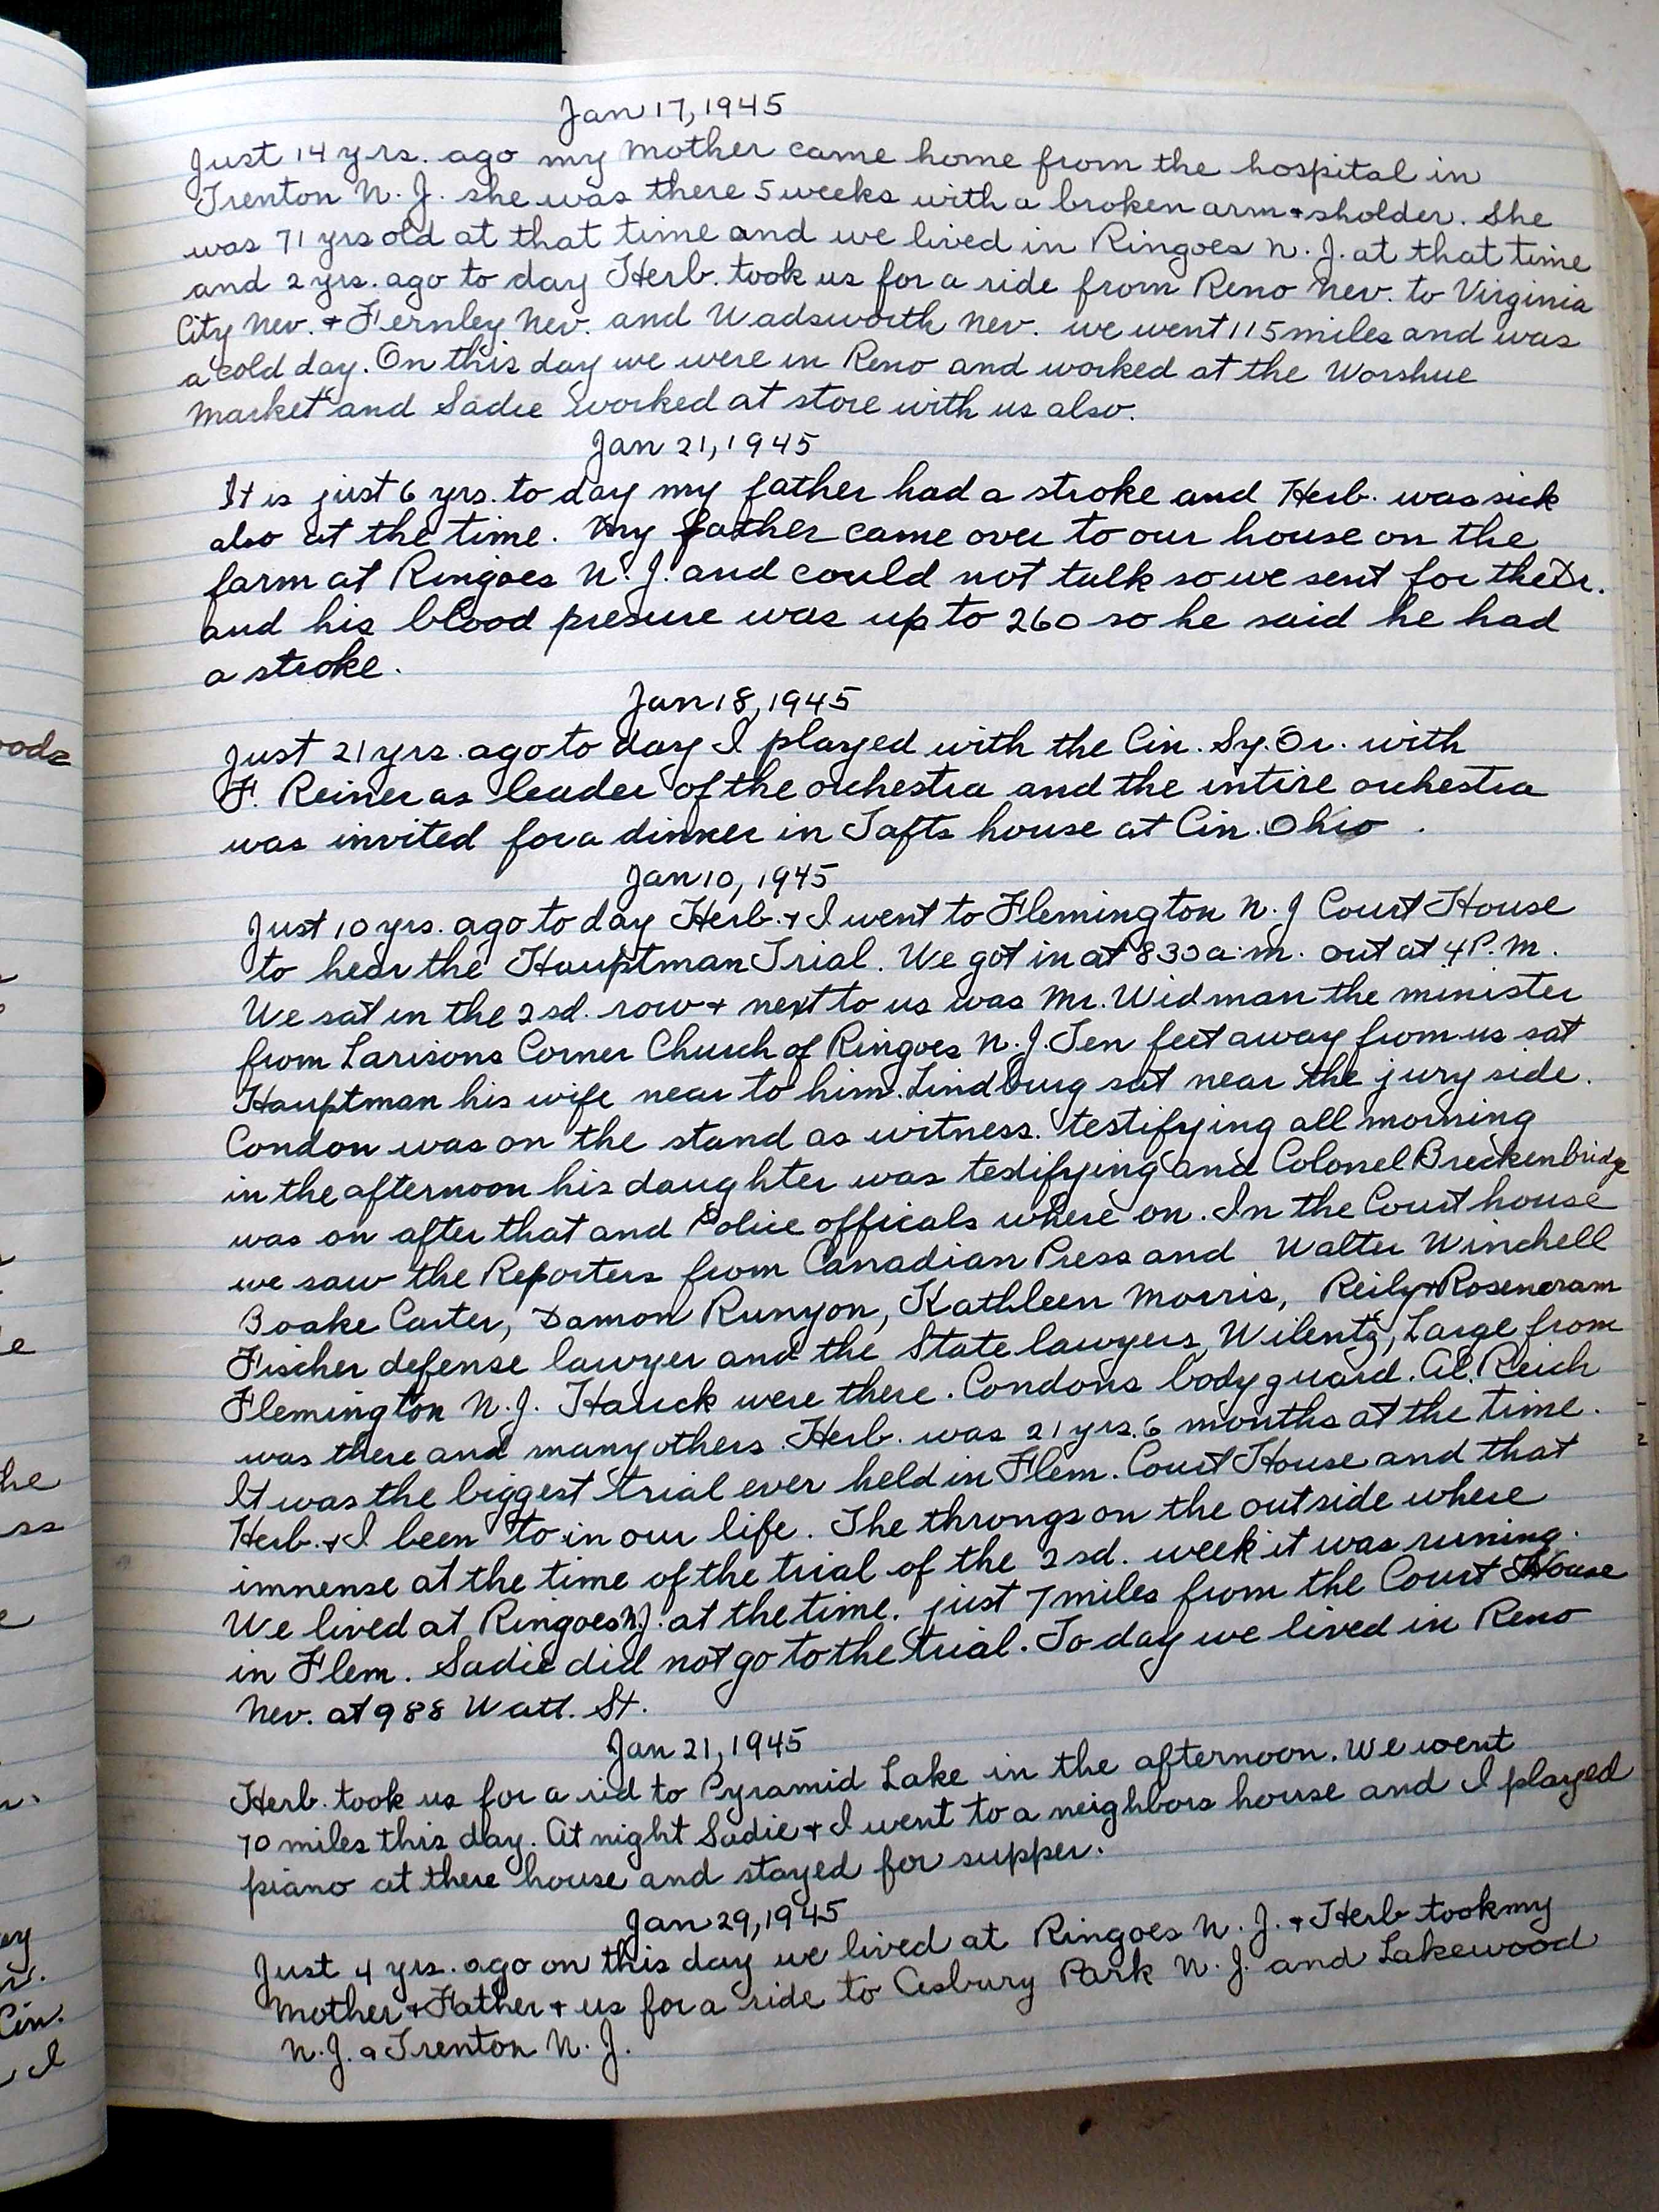 Jan 17, 1945
Just 14 yrs. ago my Mother came home from the hospital in
Trenton N. J. she was there 5 weeks with a broken arm + sholder. She
was 71 yrs old at that time and we lived in Ringoes N. J. at that time
and 2 yrs. ago to day Herb. took us for a ride from Reno Nev. to Virginia
City Nev. + Fernley Nev. and Wadsworth Nev. we went 115 miles and was
a cold day. On this day we were in Reno and worked at the Worshue
Market and Sadie worked at store with us also.
Jan 21, 1945
It is just 6 yrs. to day my father had a stroke and Herb. was sick
also at the time. My father came over to our house on the
farm at Ringoes N. J. and could not talk so we sent for the Dr.
and his blood presure was up to 260 so he said he had
a stroke.
Jan 18, 1945
Just 21 yrs. ago to day I played with the Cin. Sy. Or. with
F. Reiner as leader of the orchestra and the intire orchestra
was invited for a dinner in Tafts house at Cin. Ohio.
Jan 10, 1945
Just 10 yrs. ago to day Herb. + I went to Flemington N. J Court House
to hear the Hauptman Trial. We got in at 830 a.m. out at 4 P.M.
We sat in the 2sd. row + next to us was Mr. Widman the minister
from Larisons Corner Church of Ringoes N. J. Ten feet away from us sat
Hauptman his wife near to him. Lindburg sat near the jury side.
Condon was on the stand as witness. testifying all morning
in the afternoon his daughter was testifying and Colonel Breckenbridge
was on after that and Police officals where on. In the Court house
we saw the Reporters from Canadian Press and Walter Winchell
Boake Carter, Damon Runyon, Kathleen Morris, Reily + Rosencram
Fischer defense lawyer and the State lawyers, Wilentz, Large from
Flemington N. J. Hauck were there. Condons body guard. Al. Reich
was there and many others. Herb. was 21 yrs. 6 months at the time.
It was the biggest trial ever held in Flem. Court House and that
Herb. + I been to in our life. The throngs on the outside where
imnense at the time of the trial of the 2sd. week it was runing.
We lived at Ringoes N.J. at the time. just 7 miles from the Court House
in Flem. Sadie did not go to the trial. To day we lived in Reno
Nev. at 988 Watt. St.
Jan 21, 1945
Herb. took us for a rid to Pyramid Lake in the afternoon. We went
70 miles this day. At night Sadie + I went to a neighbors house and I played
piano at there house and stayed for supper.
Jan 29, 1945
Just 4 yrs. ago on this day we lived at Ringoes N. J. + Herb took my
Mother + Father + us for a ride to Asbury Park N. J. and Lakewood
N. J. a Trenton N. J.